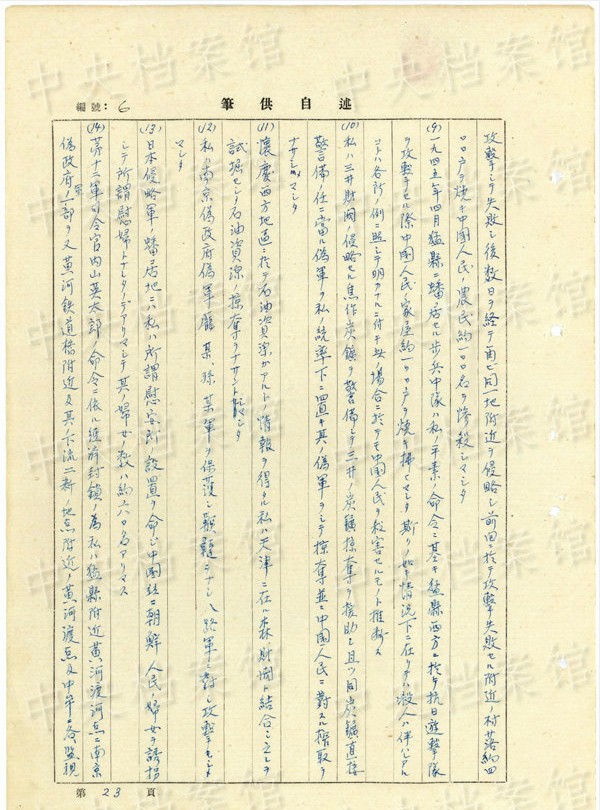 中央档案馆
編號：6
述自供筆
攻撃シタ失敗シ後数日ヲ経テ再ビ同一地附近ヲ侵略シ前回ニ於テ攻撃失敗セル附近ノ村落約四
〇〇戸ヲ焼キ中國人民、農民約一〇〇名ヲ惨殺シマシタ
(9) 一九四五年四月猛縣ニ蟠居セル歩兵中隊ハ私ノ平素ノ命令ニ基キ猛縣西方ニ於テ抗日遊撃隊
ヲ攻撃セル際中國人民ノ家屋約一〇〇戸ヲ焼キ拂ヒマシタ 斯クノ如キ情況下ニ在リテハ殺人ハ伴ハレアル
コトハ各所ノ例ニ照シテ明カナルニ付キ此ノ場合ニ於テモ中國人民ヲ殺害セルモノト推断ス
(10) 私ハ三井財閥ノ侵略セル焦作炭鑛ヲ警備シ三井ノ炭鑛掠奪ヲ援助シ且ツ同炭鑛直接
警備ノ任ニ當ル偽軍ヲ私ノ統率下ニ置キ其ノ偽軍ヲシテ掠奪並ニ中國人民ニ對スル搾取ヲ
ナサシメマシタ
(11) 懐慶西方地區ニ於テ石油資源ガアルトノ情報ヲ得タル私ハ天津ニ在ル森財閥ト結合シ之レヲ
試堀セシメ石油資源ノ掠奪ヲナサント計リマシタ
(12) 私ハ南京偽政府偽軍龐某、孫某軍ヲ保護シ鞭韃シナシ八路軍ニ對シ攻撃セシメ
マシタ
(13) 日本侵略軍ノ蟠居地ニハ私ハ所謂慰安所ノ設置ヲ命ジ中國並ニ朝鮮人民ノ婦女ヲ誘拐
シテ所謂慰安婦トナシタノデアリマシテ其ノ婦女ノ数ハ約六〇名アリマス
(14) 第十二軍司令官内山英太郎ノ命令ニ依ル經済封鎖ノ為私ハ猛縣附近黄河渡河点ニ南京
偽政府軍ノ一部ヲ又黄河鉄道橋附近及其ノ下流二新ノ地点附近ノ黄河渡点及中牟ニ各監視
第23頁